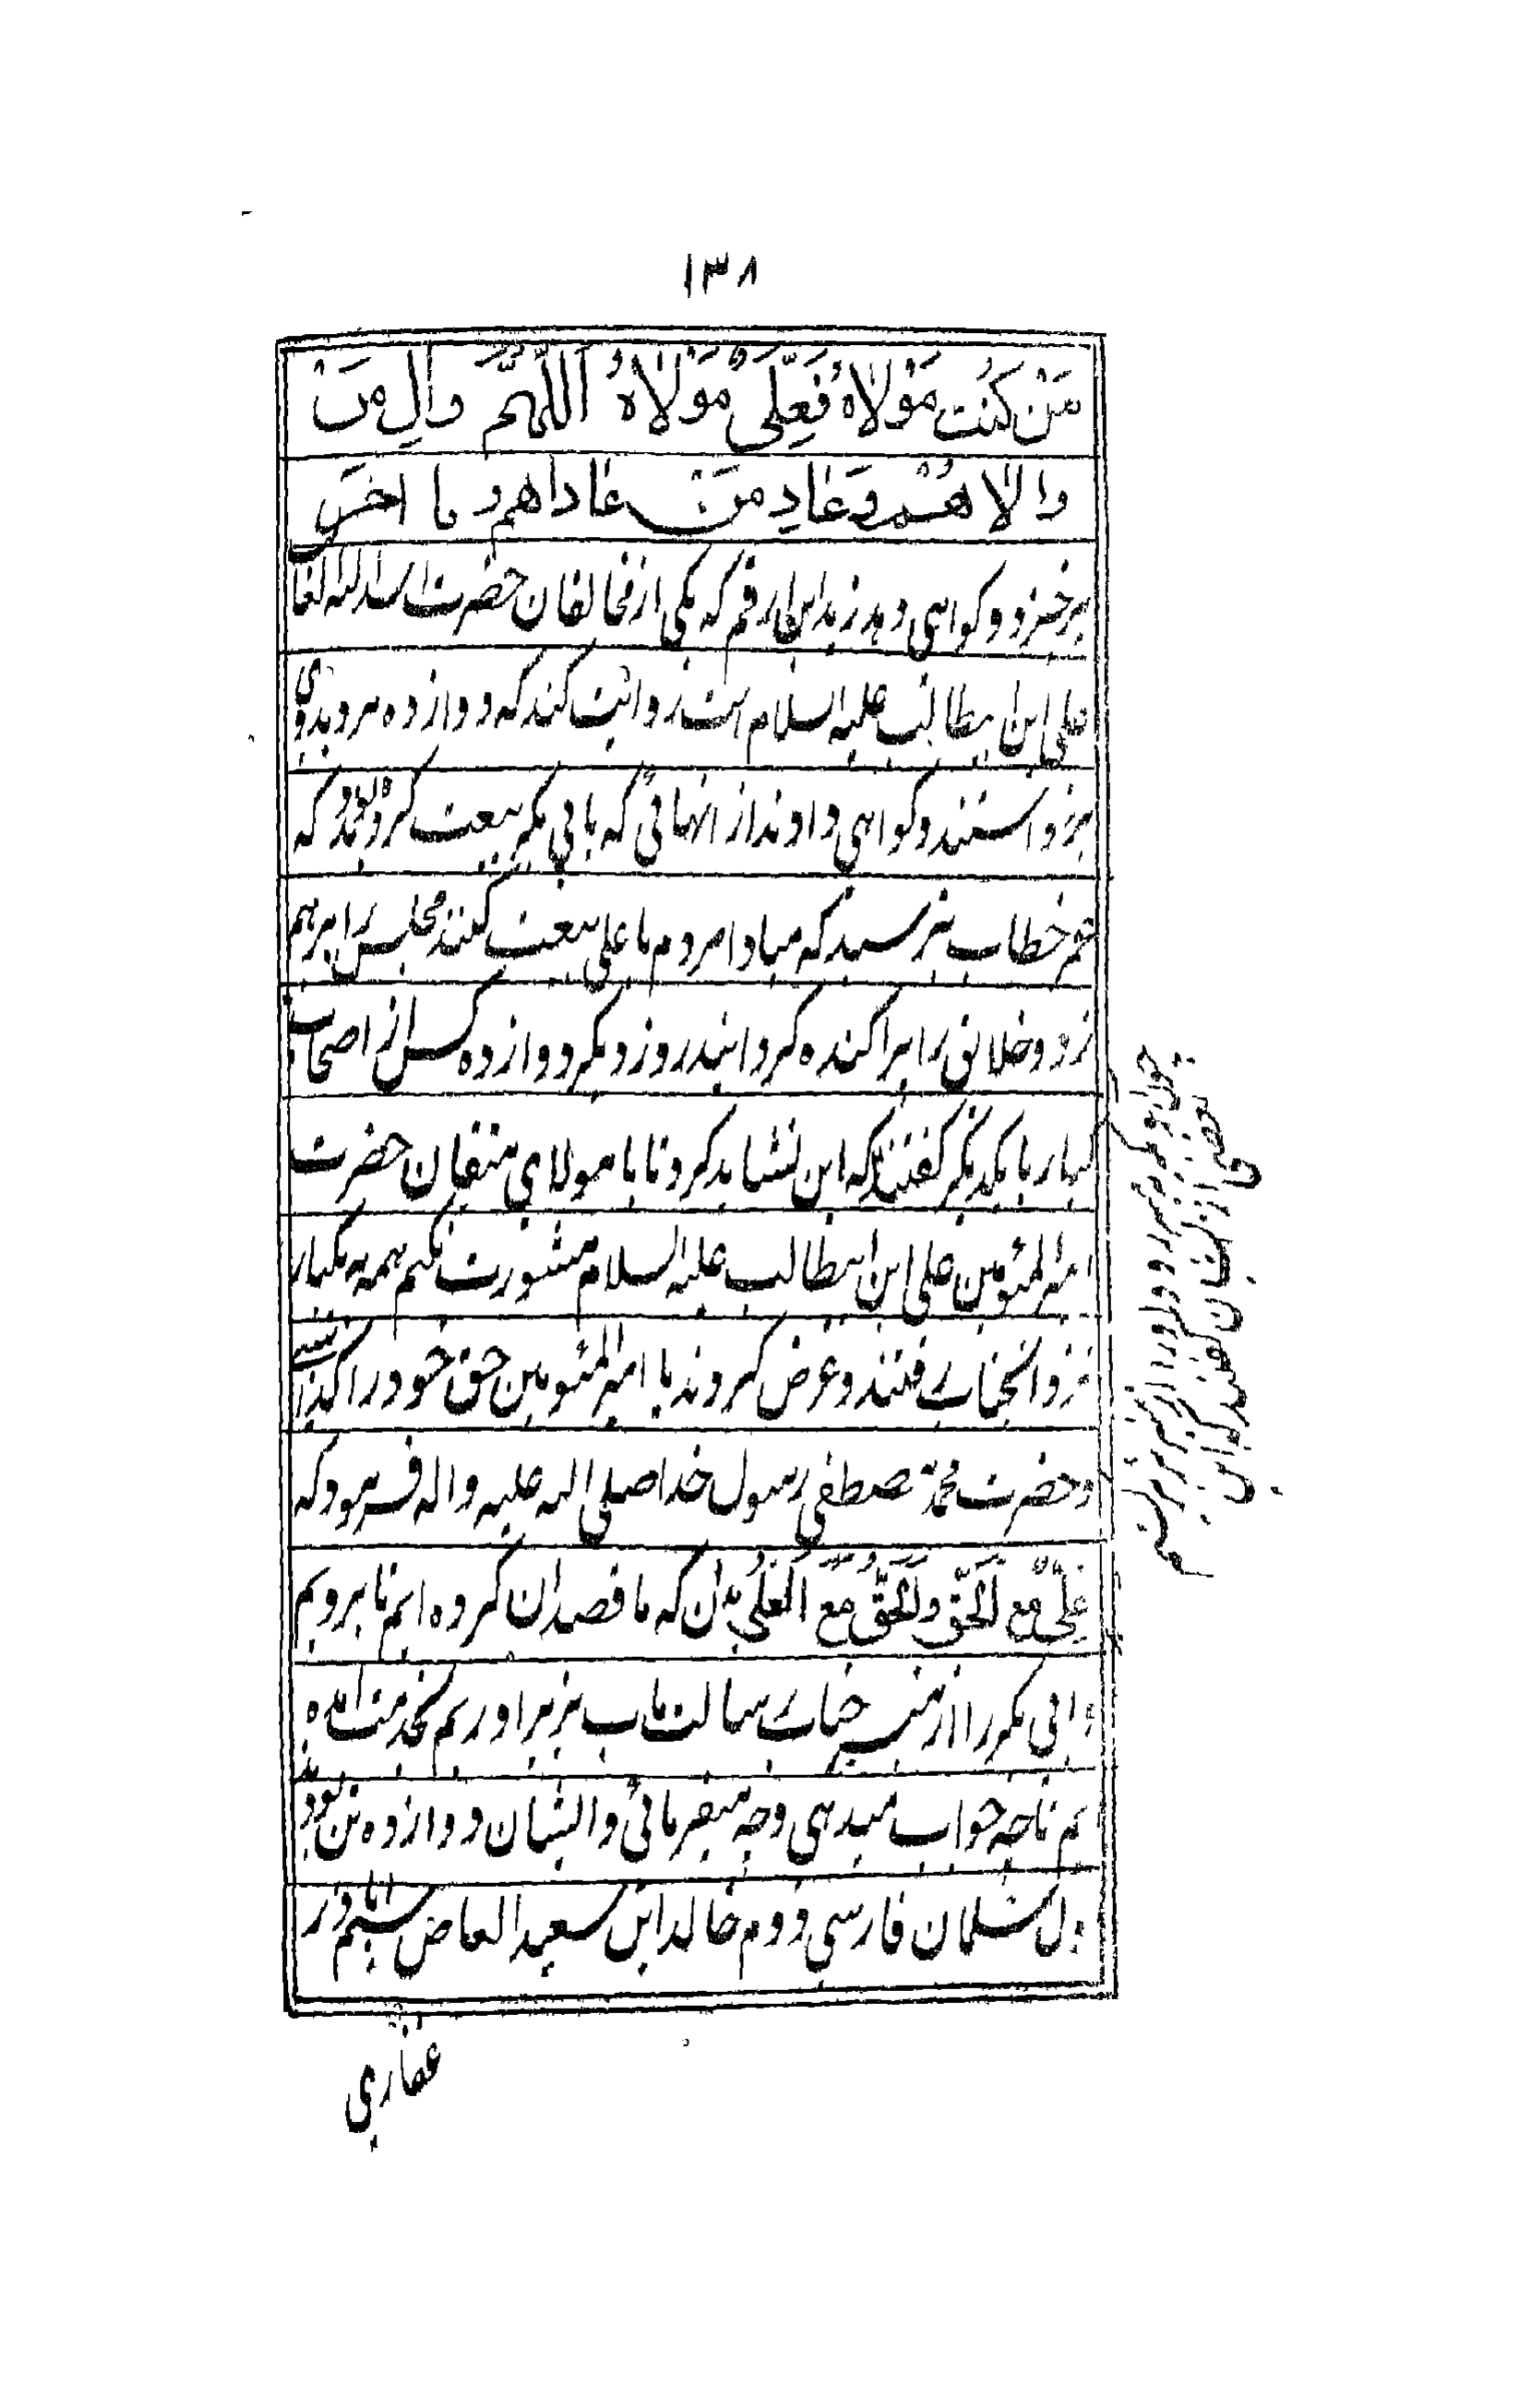 ۱۳۸
مَنْ كُنْت مَوْلاهُ فَعَلِّىٌ مَوْلَاهُ اَللّٰهُمَّ والِ مَنْ
والاهُمْ وَعادِ مَنْ عاداهم و تا اخر
برخیزد و کواهی دهد زید ابن ارقم که یکی از مخالفان حضرت اسد الله الغا
علی ابن ابیطالب علیه السلام است روایت کند که دوازده مرد بدری
برخواستند و کواهی دادند از انهائی که با ابی بکر بیعت کرده بودند که
عمر خطاب بترسید که مبادا مردم با علی بیعت کنند مجلس را برهم
زد و خلائق را پراکنده کردانید روز دیکر دوازده کس از اصحاب
کبار با یکدیکر کفتند که این نشاید کرد تا با مولای متقیان حضرت
امیر المئومین علی ابن ابیطالب علیه السلام مشورت نکنیم همه به یکبار
نزد انجناب رفتند و عرض کردند یا امیر المئومین حق خود را
و حضرت محمد مصطفی رسول خدا صلی الله علیه و اله فرمود که
عَلِّىٌ مَع الَحَقِّ والَحَقُّ مَعَ الْعَلّى بدان که ما قصد ان کرده ایم تا برویم
و ابی بکر را از منبر جناب رسالت ماب بزیر اوریم بخدمت امده
ایم تا چه جواب میدهی و چه میفرمائی و ایشان دوازده تن بودند
اول سلمان فارسی دوم خالد ابن سعید العاص سیم اباذر
غفاری
بعضی از ایشان کفتند که این